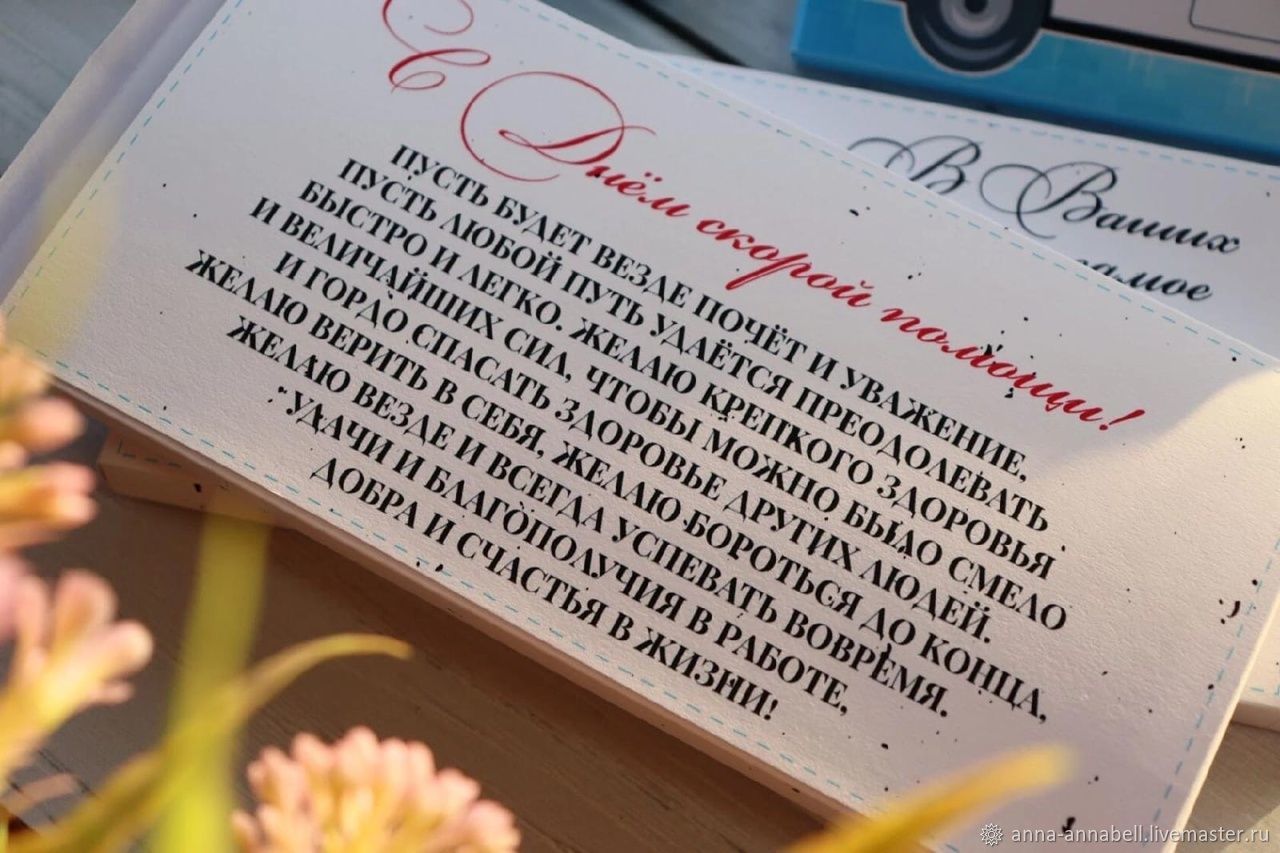 С Днём скорой помощи!
ПУСТЬ БУДЕТ ВЕЗДЕ ПОЧЁТ И УВАЖЕНИЕ,
ПУСТЬ ЛЮБОЙ ПУТЬ УДАЁТСЯ ПРЕОДОЛЕВАТЬ
БЫСТРО И ЛЕГКО. ЖЕЛАЮ КРЕПКОГО ЗДОРОВЬЯ
И ВЕЛИЧАЙШИХ СИЛ, ЧТОБЫ МОЖНО БЫЛО СМЕЛО
И ГОРДО СПАСАТЬ ЗДОРОВЬЕ ДРУГИХ ЛЮДЕЙ.
ЖЕЛАЮ ВЕРИТЬ В СЕБЯ, ЖЕЛАЮ БОРОТЬСЯ ДО КОНЦА,
ЖЕЛАЮ ВЕЗДЕ И ВСЕГДА УСПЕВАТЬ ВОВРЕМЯ.
УДАЧИ И БЛАГОПОЛУЧИЯ В РАБОТЕ,
ДОБРА И СЧАСТЬЯ В ЖИЗНИ!
В Ваших
самое
anna-annabell.livemaster.ru